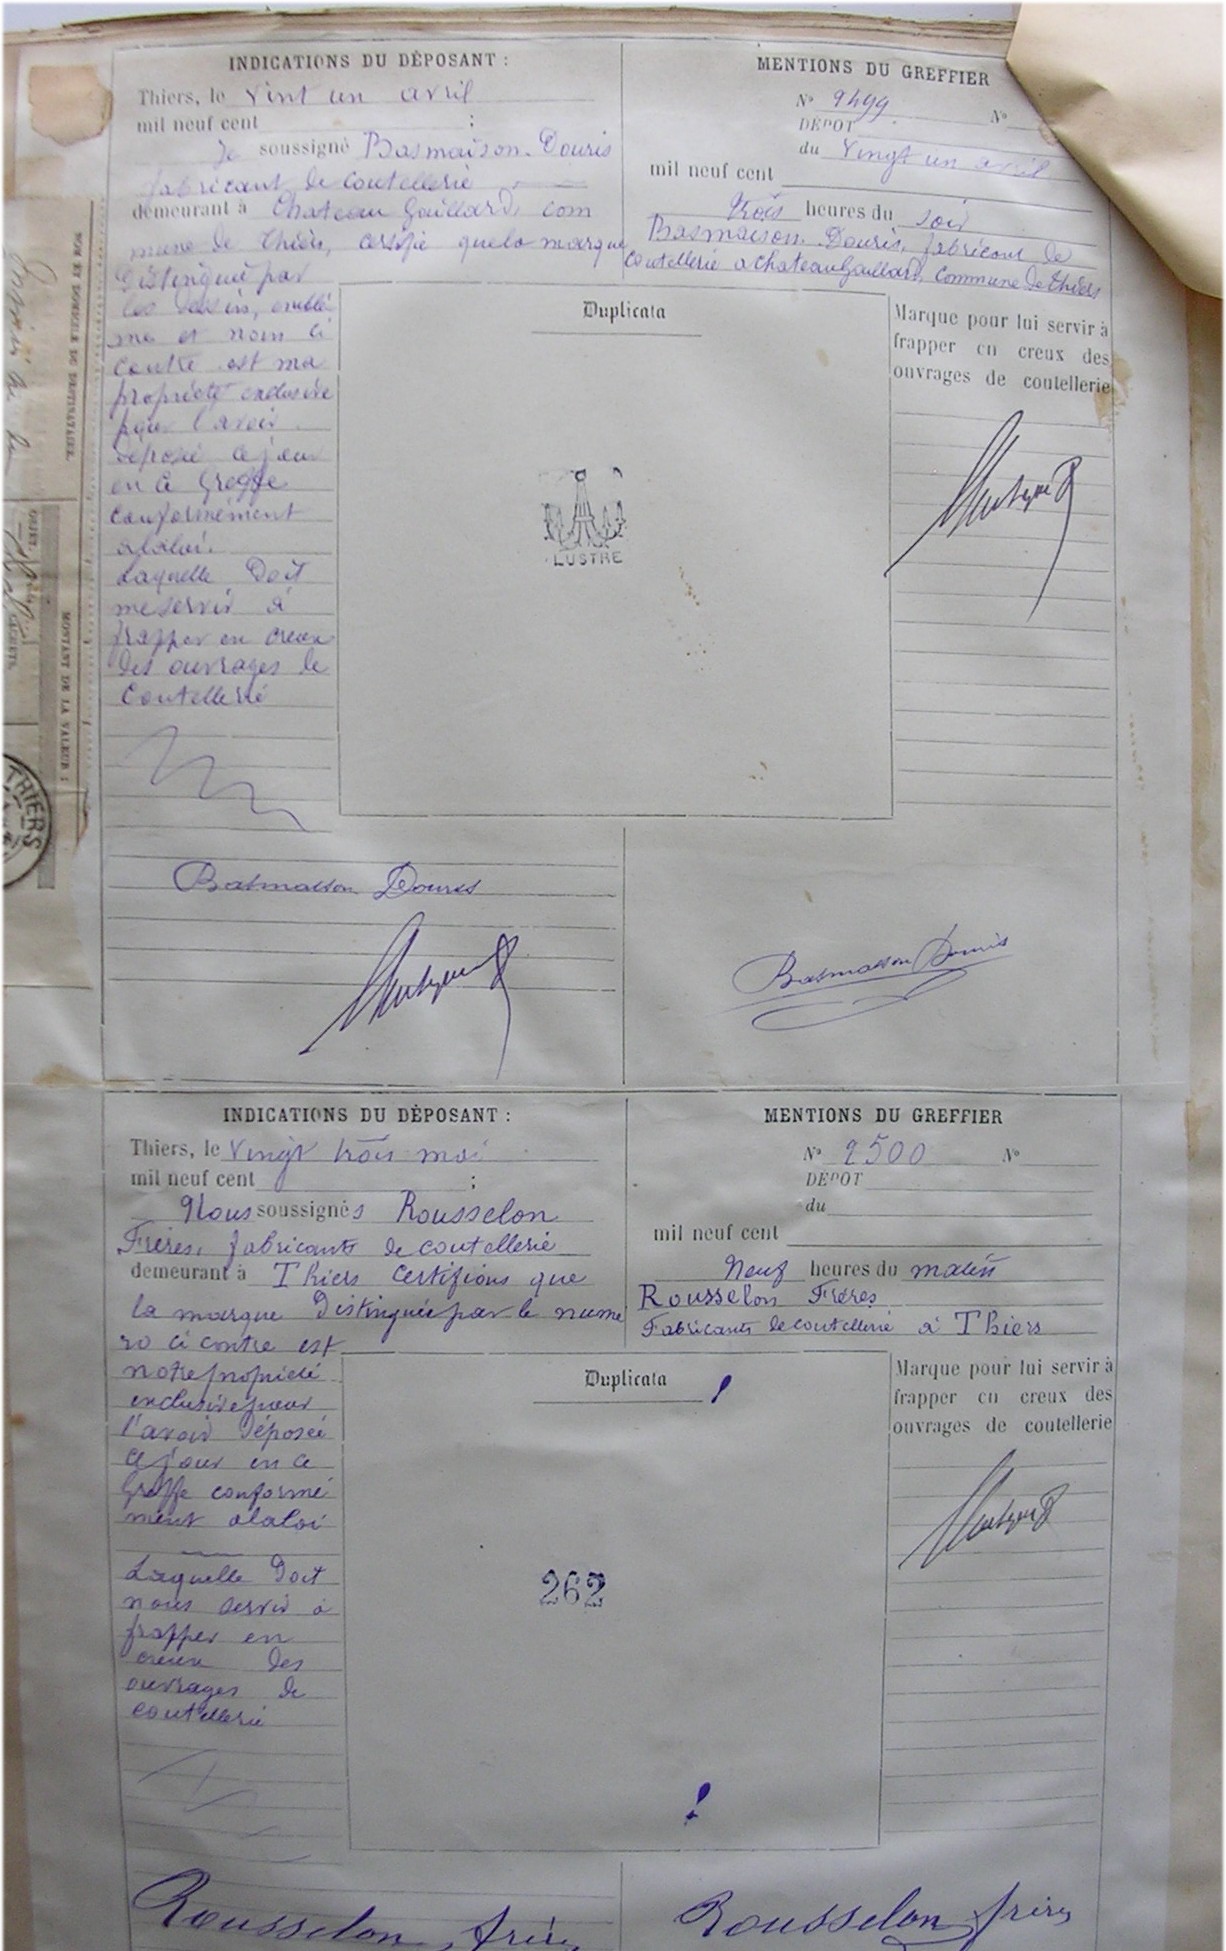 INDICATIONS DU DÉPOSANT :
Thiers, le Vint un avril
mil neuf cent ;
Je soussigné Basmaison-Douris
fabricant de coutellerie
demeurant à Chateau Gaillard, com
mune de Thiers, certifie que la marque
Distinguée par
les dessin, emblè
me et nom ci
contre est ma
propriété exclusive
pour l'avoir
déposé ce jour
en ce Greffe
conformément
a la loi.
Laquelle Doit
me servir à
frapper en creux
des ouvrages de
Coutellerie
Basmaison Douris
MENTIONS DU GREFFIER
N° 2499 N°
DÉPOT
du Vingt un avril
mil neuf cent
trois heures du soir
Basmaison Douris, fabricant de
coutellerie a Chateau Gaillard, commune de Thiers
Duplicata
LUSTRE
Marque pour lui servir à
frapper en creux des
ouvrages de coutellerie
Basmaison Douris
NOM ET DOMICILE DU DESTINATAIRE.
OBJET.
MONTANT DE LA VALEUR :
THIERS
INDICATIONS DU DÉPOSANT :
Thiers, le Vingt trois mai
mil neuf cent ;
Nous soussignés Rousselon
Frères, fabricants de coutellerie
demeurant à Thiers certifions que
la marque Distinguée par le numé
ro ci contre est
notre propriété
exclusive pour
l'avoir déposée
ce jour en ce
Greffe conformé
ment a la loi
Laquelle Doit
nous servir à
frapper en
creux des
ouvrages de
coutellerie
Rousselon frères
MENTIONS DU GREFFIER
N° 2500 N°
DÉPOT
du
mil neuf cent
Neuf heures du matin
Rousselon Frères
Fabricants de coutellerie à Thiers
Duplicata
262
Marque pour lui servir à
frapper en creux des
ouvrages de coutellerie
Rousselon frères